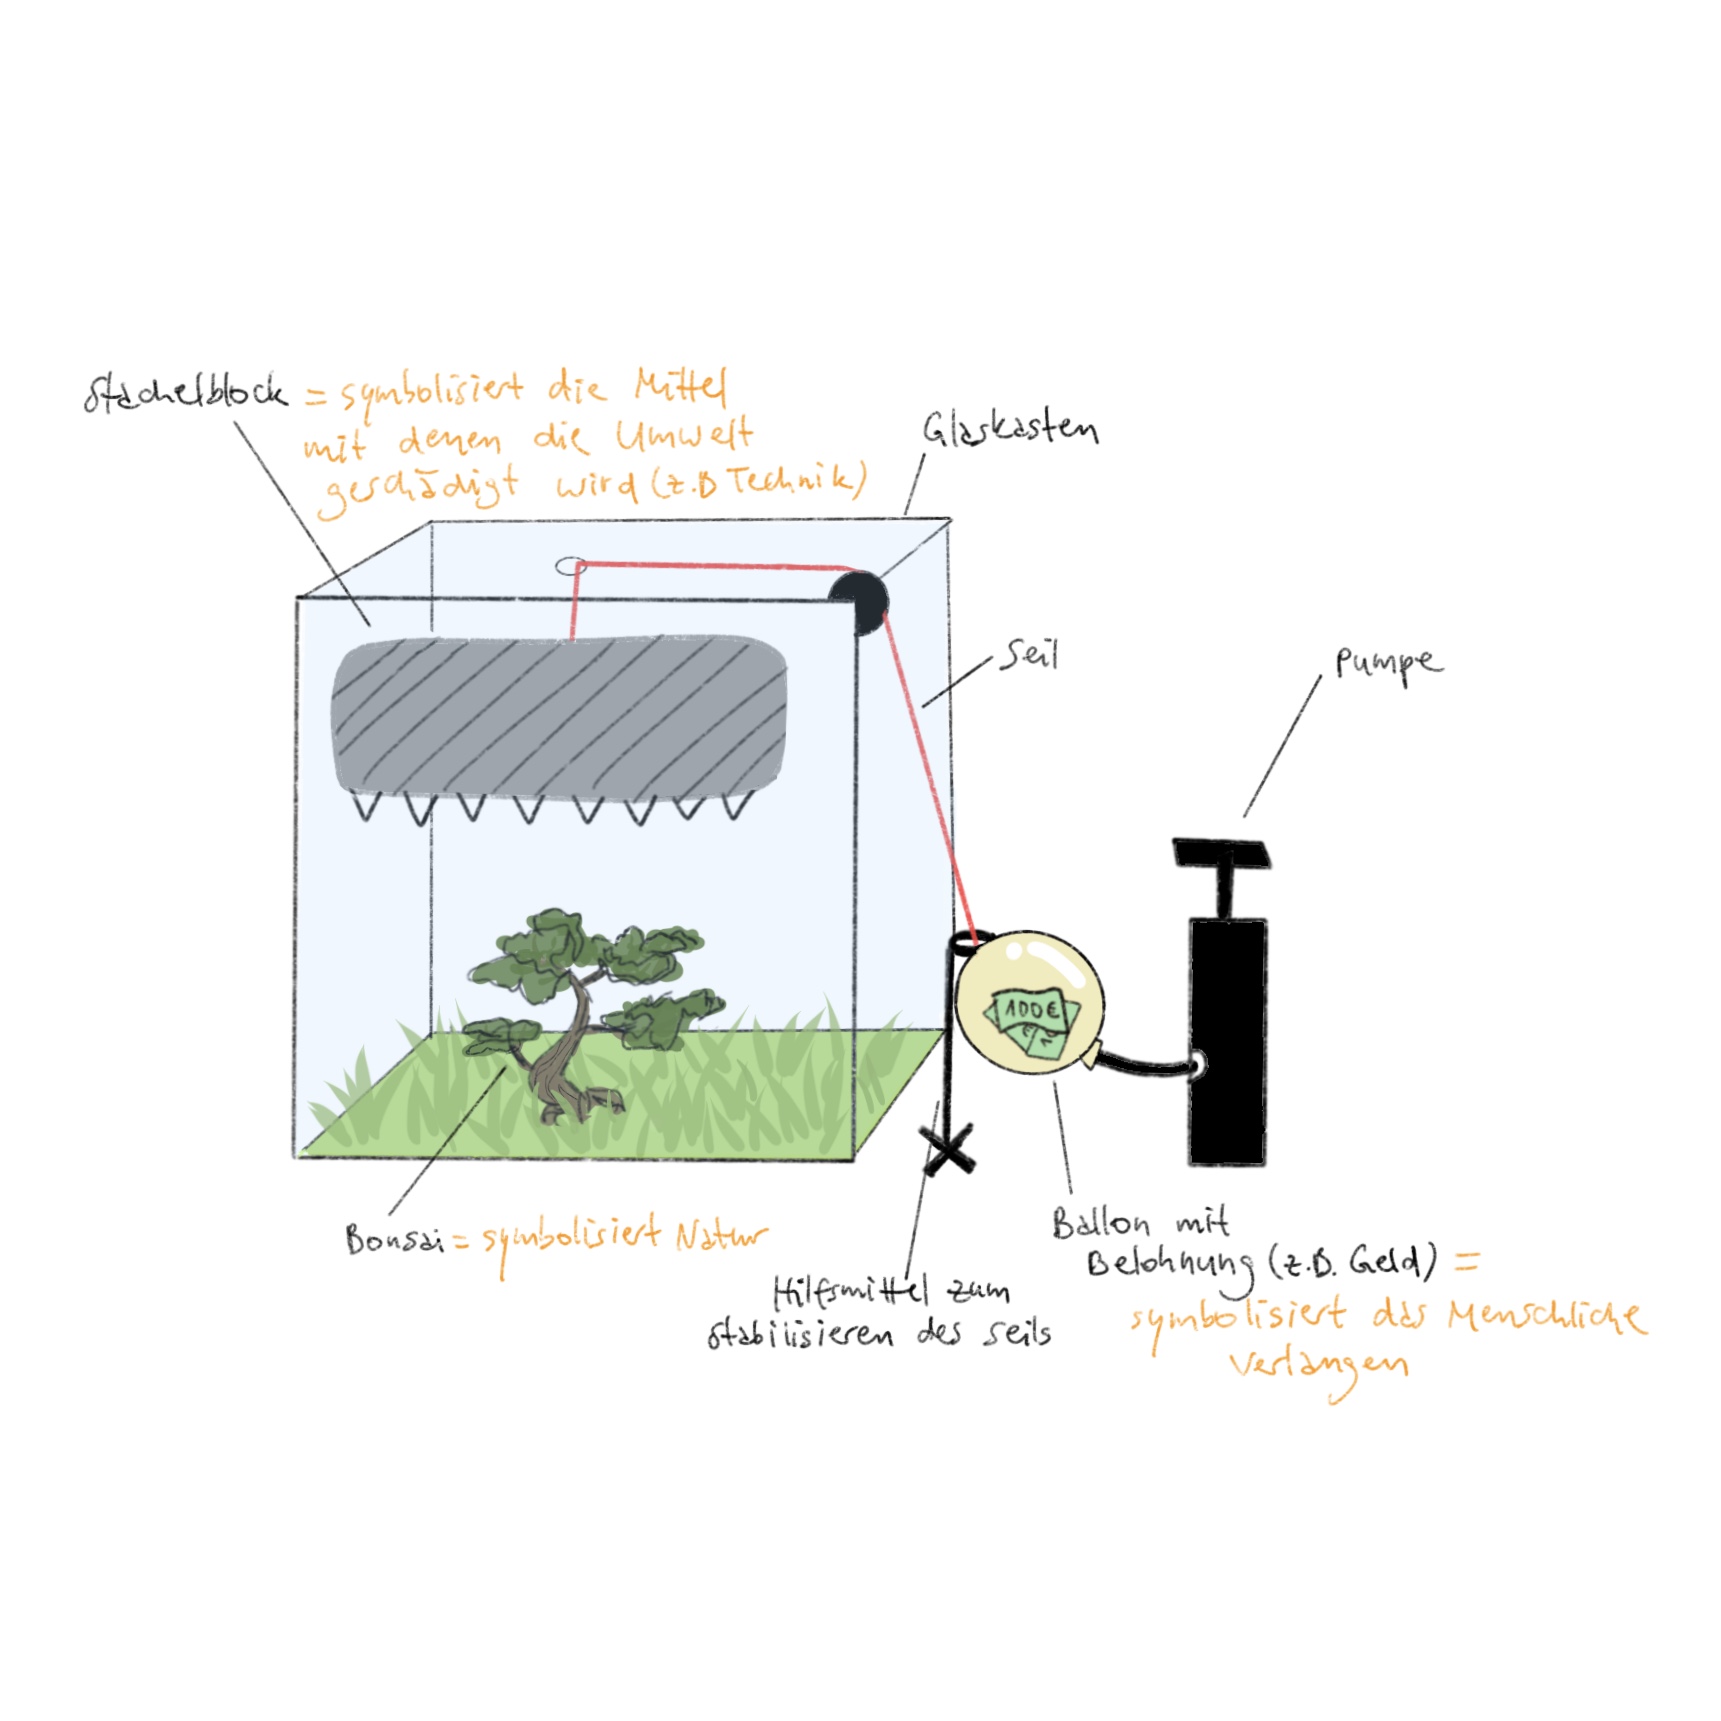 Stachelblock = symbolisiert die Mittel
mit denen die Umwelt
geschädigt wird (z.B Technik)
Glaskasten
Seil
Pumpe
100€
€
Bonsai = symbolisiert Natur
Hilfsmittel zum
stabilisieren des Seils
Ballon mit
Belohnung (z.B. Geld) =
symbolisiert das Menschliche
Verlangen